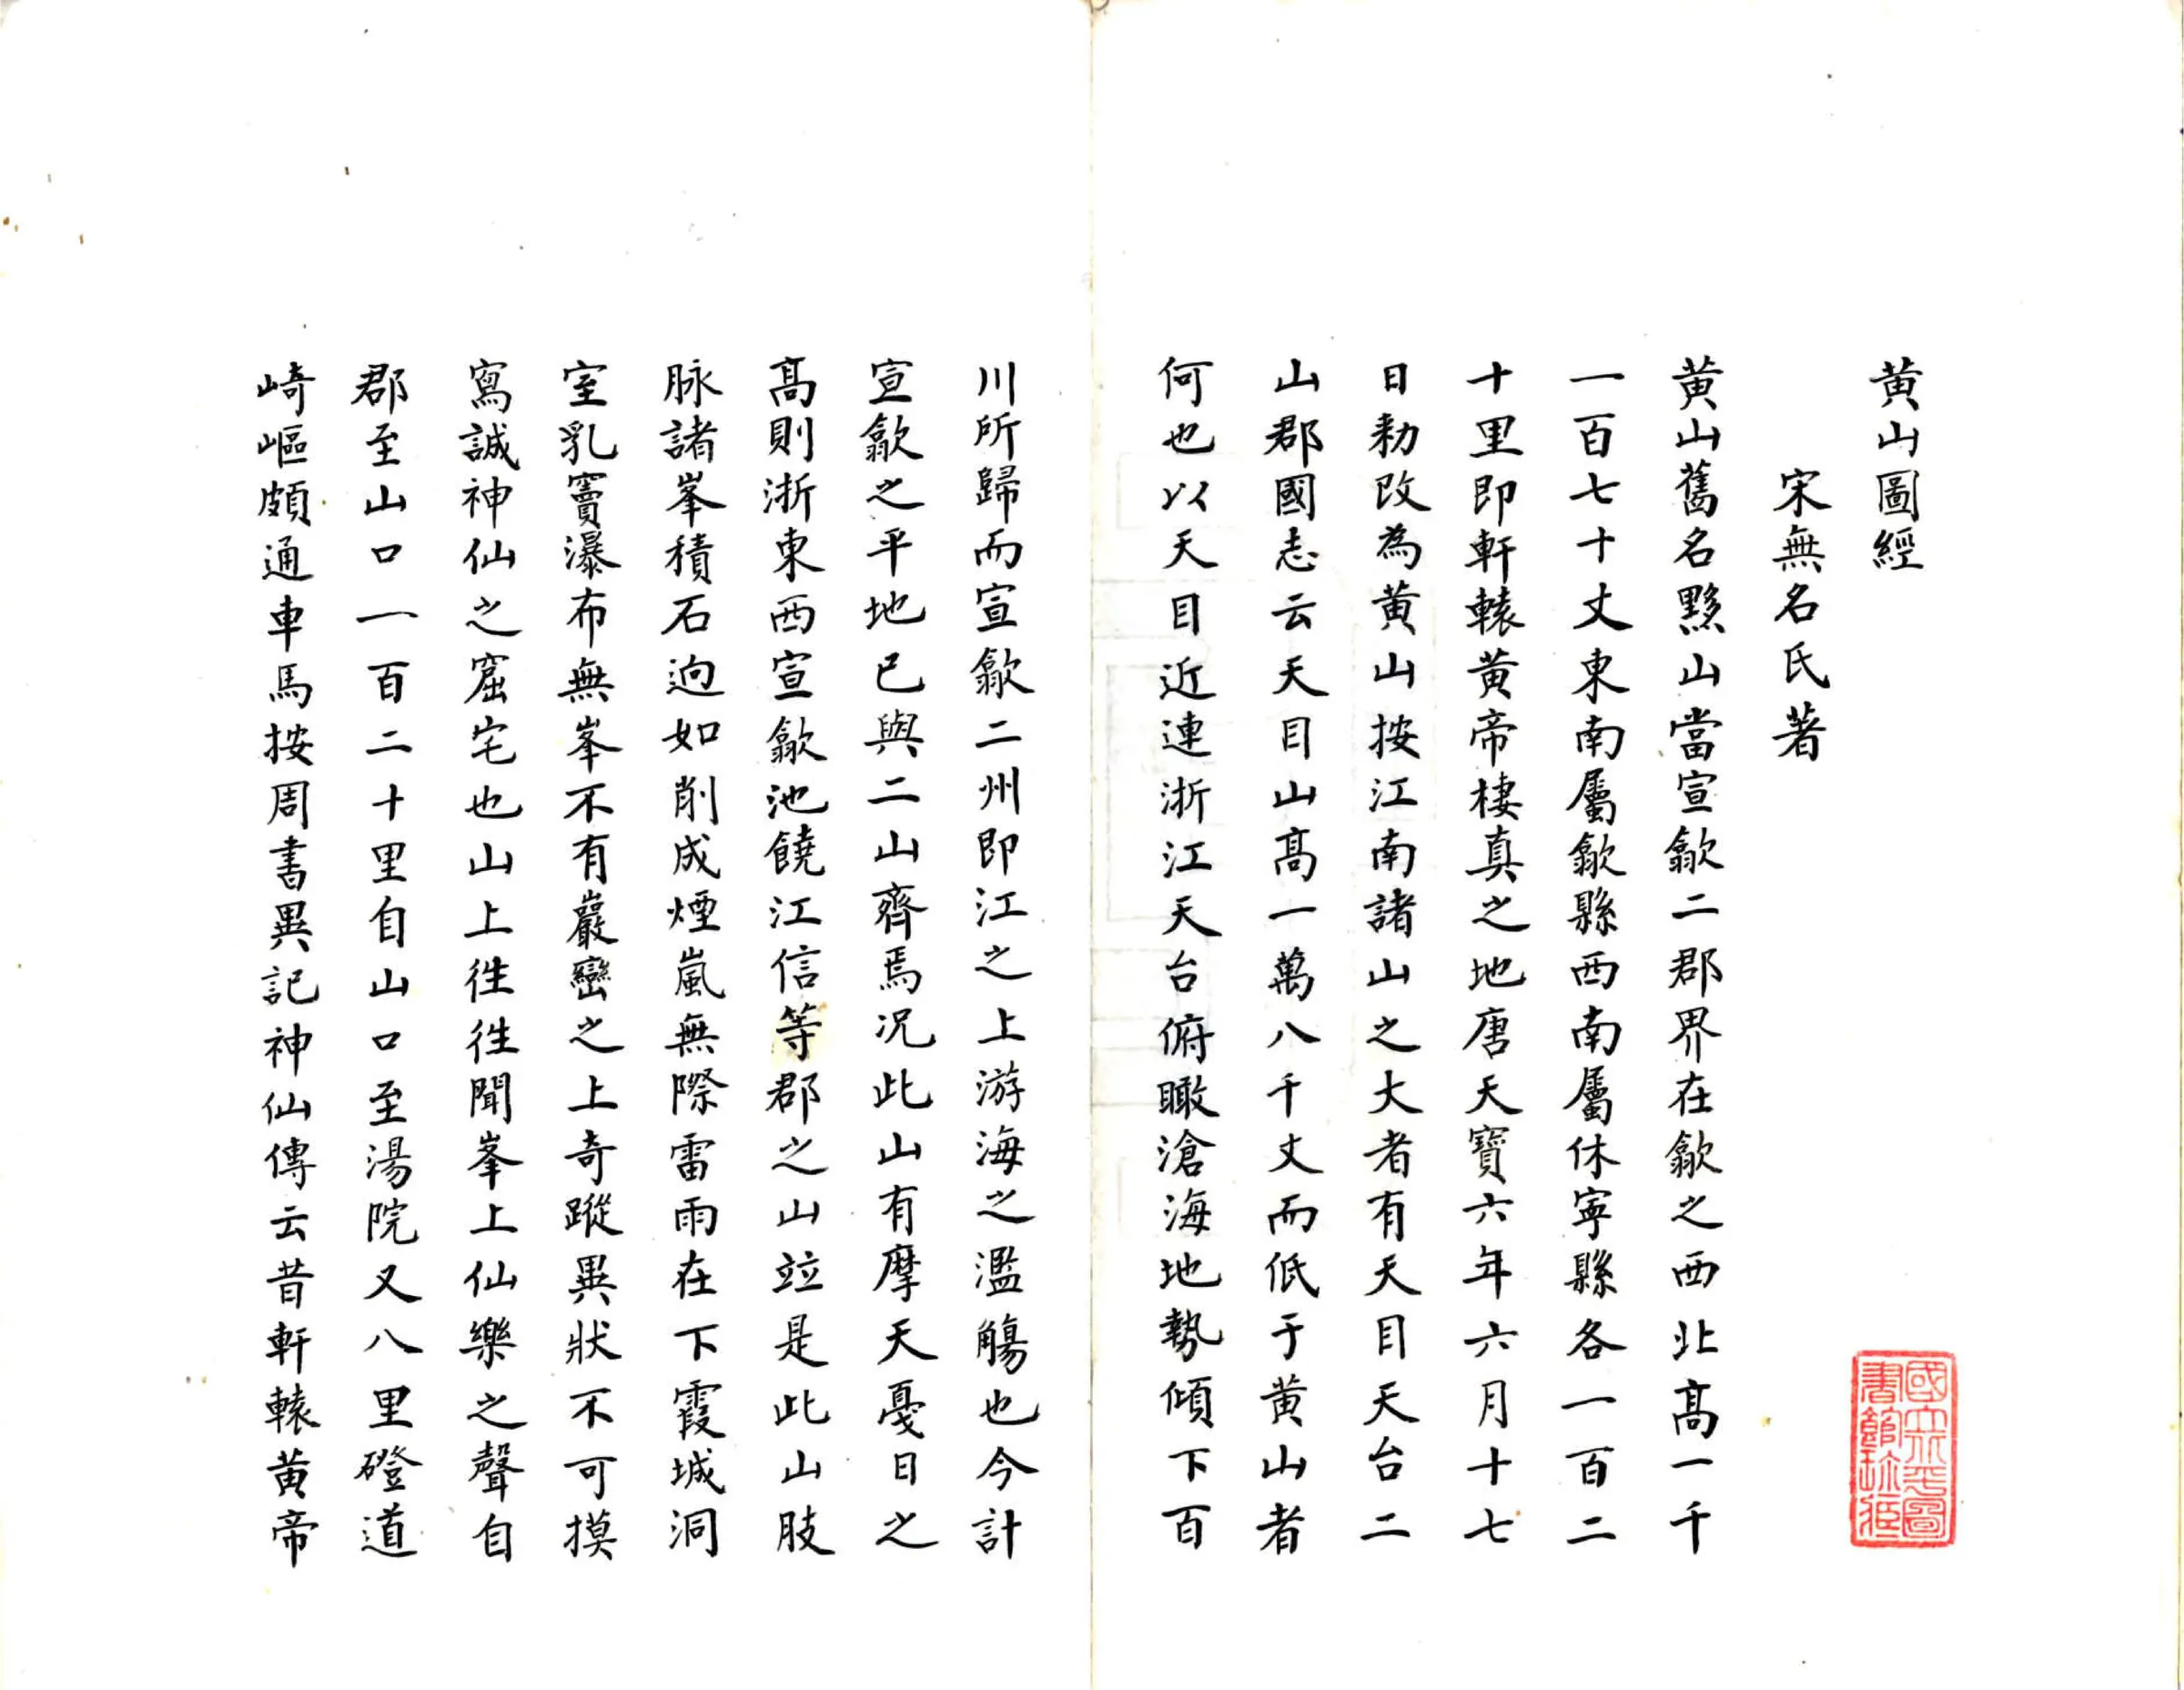 黄山圖經
宋無名氏著
黄山舊名黟山當宣歙二郡界在歙之西北髙一千
一百七十丈東南屬歙縣西南屬休寧縣各一百二
十里即軒轅黄帝棲真之地唐天寳六年六月十七
日勑改為黄山按江南諸山之大者有天目天台二
山郡國志云天目山髙一萬八千丈而低于黄山者
何也以天目近連浙江天台俯瞰滄海地勢傾下百
川所歸而宣歙二州即江之上游海之濫觴也今計
宣歙之平地已與二山齊焉况此山有摩天戞日之
髙則浙東西宣歙池饒江信等郡之山竝是此山肢
脉諸峯積石逈如削成煙嵐無際雷雨在下霞城洞
室乳竇瀑布無峯不有巖巒之上奇蹤異狀不可摸
寫誠神仙之窟宅也山上徃徃聞峯上仙樂之聲自
郡至山口一百二十里自山口至湯院又八里磴道
崎嶇頗通車馬按周書異記神仙傳云昔軒轅黄帝
國立北平圖
書館珍藏